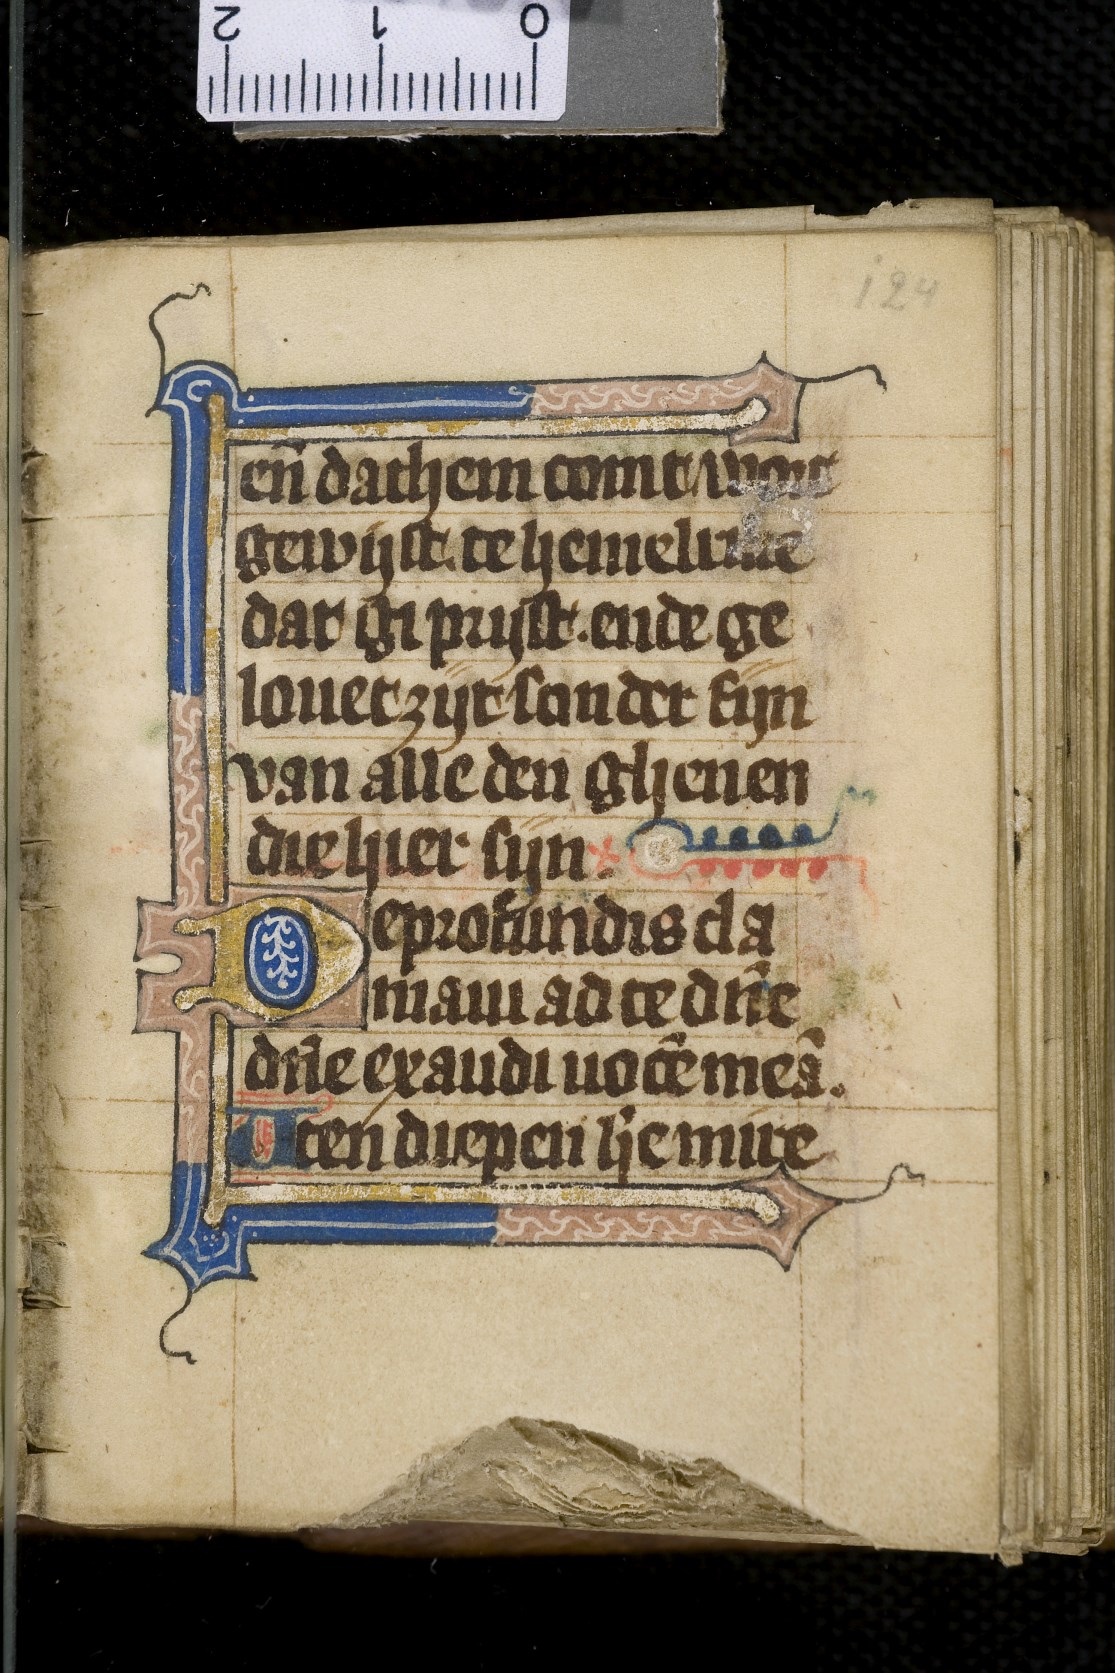 2 1 0
124
en̄ dat hem comt wort
gewijst. te hemelrike
dat gi prijst. ende ge
louet zijt sonder fijn
van alle den ghenen
die hier sijn.
De profundis cla
maui ad te dn̄e
dn̄e exaudi uocē meā.
Uten diepen h̄e mire